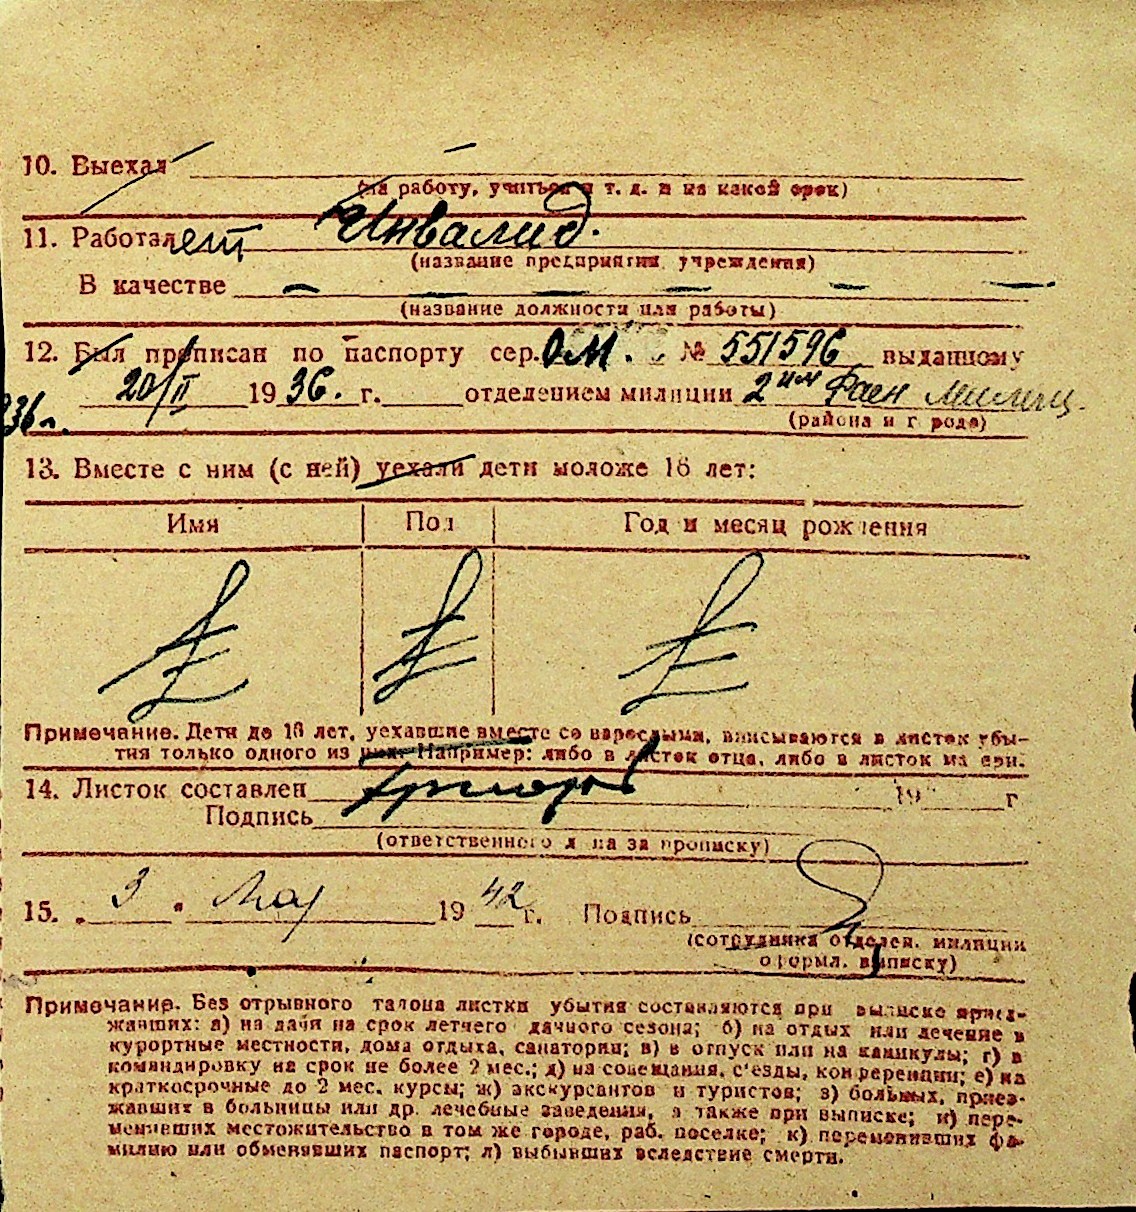 10. Выехал
(на работу, учиться и т. д. и на какой срок)
11. Работает Инвалид.
(название предприятия, учреждения)
В качестве
(название должности или работы)
12. Был прописан по паспорту сер. ОМ. № 551596 выданному
20/II 1936. г. отделением милиции 2
36г.
(района и города)
13. Вместе с ним (с ней) уехали дети моложе 16 лет:
Имя Пол Год и месяц рождения
Примечание. Дети до 16 лет, уехавшие вместе со взрослыми, вписываются в листок убы-
тия только одного из них. Например: либо в листок отца, либо в листок матери.
14. Листок составлен 19 г
Подпись
(ответственного лица за прописку)
15. „ 3 " Мая 1942 г. Подпись
(сотрудника отделен. милиции
оформл. выписку)
Примечание. Без отрывного талона листки убытия составляются при выписке приез-
жавших: а) на дачи на срок летнего дачного сезона; б) на отдых или лечение в
курортные местности, дома отдыха, санатории; в) в отпуск или на каникулы; г) в
командировку на срок не более 2 мес.; д) на совещания, с'езды, конференции; е) на
краткосрочные до 2 мес. курсы; ж) экскурсантов и туристов; з) больных, приез-
жавших в больницы или др. лечебные заведения, а также при выписке; и) пере-
менивших местожительство в том же городе, раб. поселке; к) переменивших фа-
милию или обменявших паспорт; л) выбывших вследствие смерти.